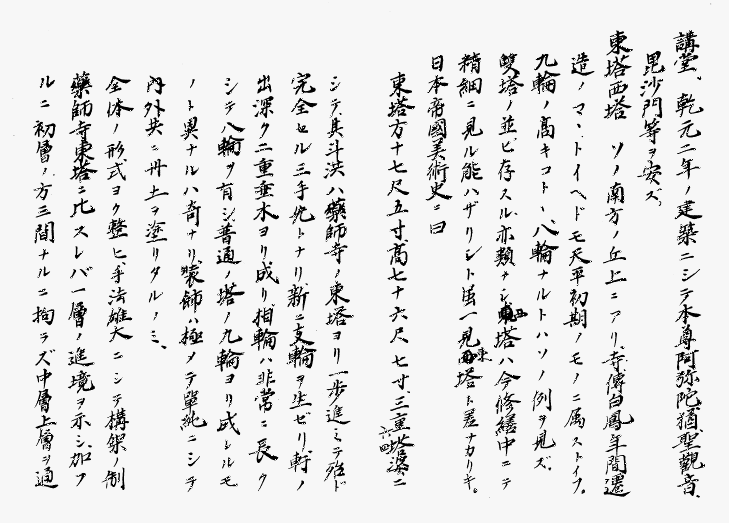 講堂、乾元二年ノ建築ニシテ本尊阿弥陀、猶聖觀音、
毘沙門等ヲ安ズ。
東塔西塔　ソノ南方ノ丘上ニアリ、寺傳白鳳年間遷
造ノマヽトイヘドモ天平初期ノモノニ属ストイフ。
九輪ノ高キコト、八輪ナルトハソノ例ヲ見ズ。
雙塔ノ並ビ存スル亦類ナシ、西塔ハ今修繕中ニテ
精細ニ見ル能ハザリシト虽一見東塔ト差ナカリキ。
日本帝國美術史ニ曰
東塔方十七尺五寸、高七十六尺七寸、三重塔婆ニ
シテ其斗拱ハ藥師寺ノ東塔ヨリ一歩進ミテ殆ド
完全セル三手先トナリ新ニ支輪ヲ生ゼリ、軒ノ
出深ク二重垂木ヨリ成リ相輪ハ非常ニ長ク
シテ八輪ヲ有シ普通ノ塔ノ九輪ヨリ成レルモ
ノト異ナルハ奇ナリ、装飾ハ極メテ單純ニシテ
内外共ニ丹土ヲ塗リタルノミ、
全体ノ形式ヨク整ヒ、手法雄大ニシテ構架ノ制
藥師寺東塔ニ比スレバ一層ノ進境ヲ示シ、加フ
ルニ初層ノ方三間ナルニ拘ラズ中層上層ヲ通